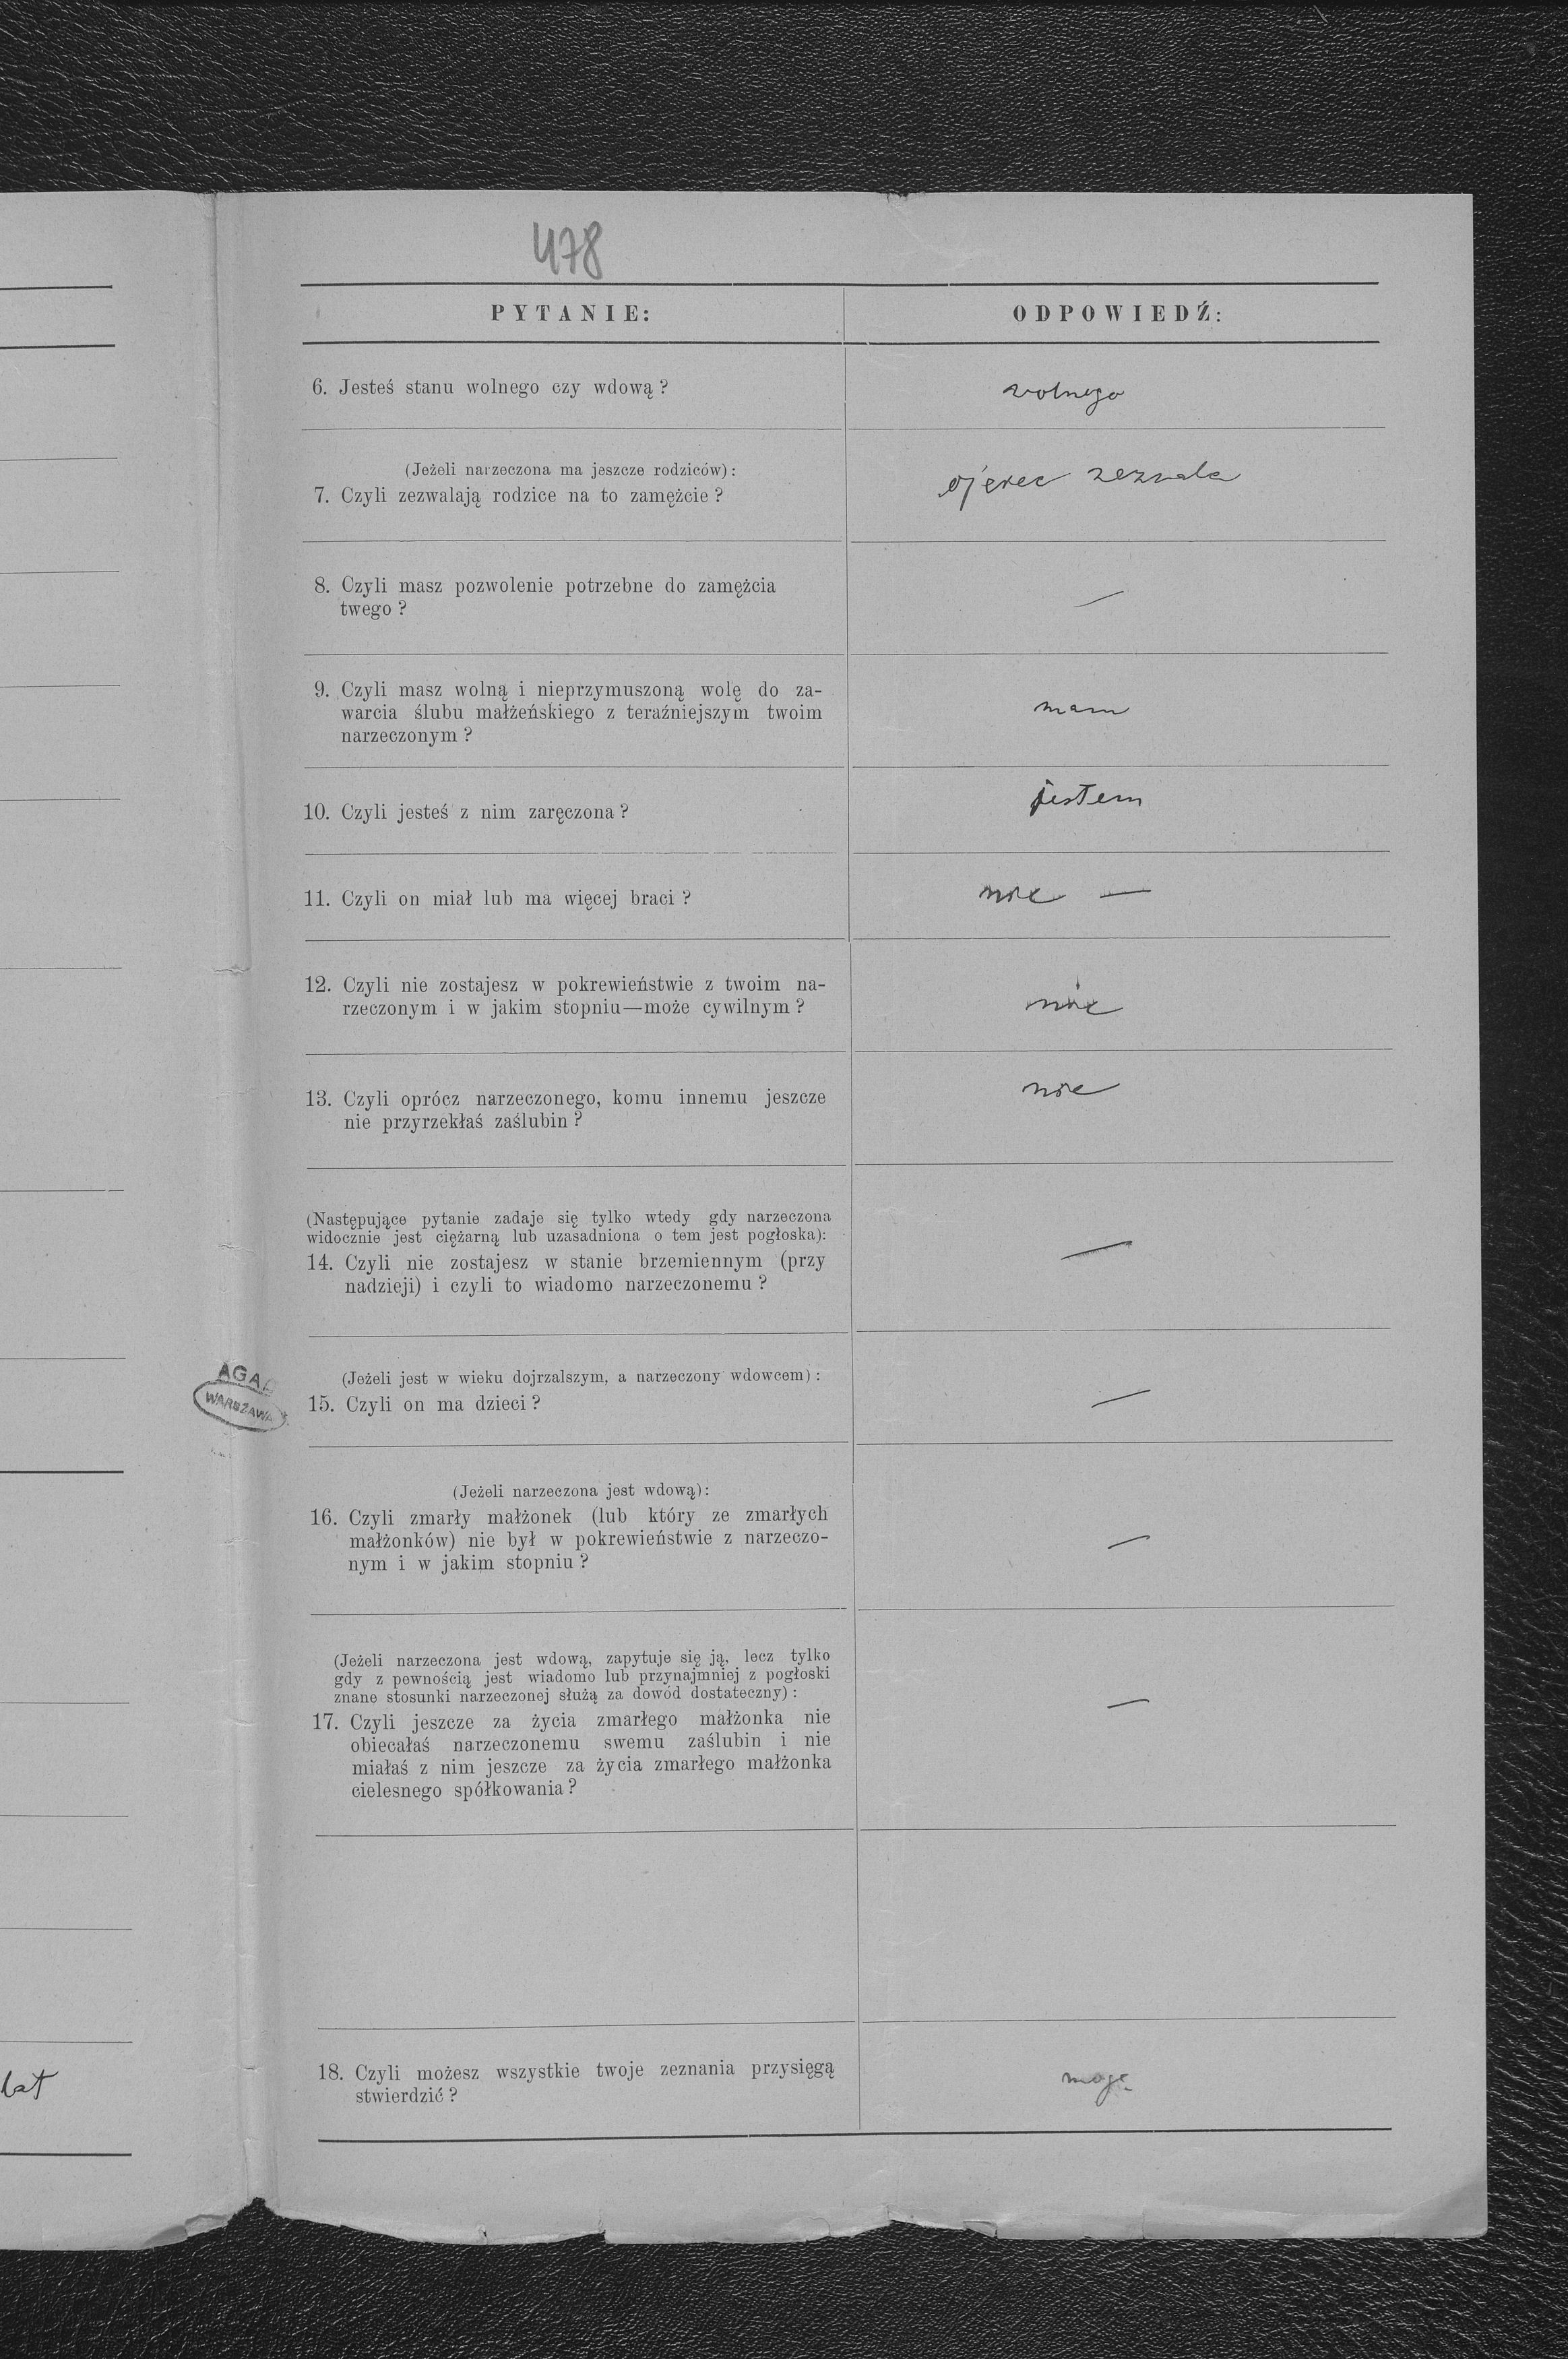 478
PYTANIE:
ODPOWIEDŹ:
6. Jesteś stanu wolnego czy wdową?
wolnego
(Jeżeli narzeczona ma jeszcze rodziców):
7. Czyli zezwalają rodzice na to zamęźcie?
ojciec zezwala
8. Czyli masz pozwolenie potrzebne do zamęźcia
twego?
—
9. Czyli masz wolną i nieprzymuszoną wolę do za-
warcia ślubu małżeńskiego z teraźniejszym twoim
narzeczonym?
mam
10. Czyli jesteś z nim zaręczona?
jestem
11. Czyli on miał lub ma więcej braci?
nie —
12. Czyli nie zostajesz w pokrewieństwie z twoim na-
rzeczonym i w jakim stopniu—może cywilnym?
nie
13. Czyli oprócz narzeczonego, komu innemu jeszcze
nie przyrzekłaś zaślubin?
nie
(Następujące pytanie zadaje się tylko wtedy gdy narzeczona
widocznie jest ciężarną lub uzasadniona o tem jest pogłoska):
14. Czyli nie zostajesz w stanie brzemiennym (przy
nadzieji) i czyli to wiadomo narzeczonemu?
—
(Jeżeli jest w wieku dojrzalszym, a narzeczony wdowcem):
15. Czyli on ma dzieci?
—
AGAD
WARSZAWA
(Jeżeli narzeczona jest wdową):
16. Czyli zmarły małżonek (lub który ze zmarłych
małżonków) nie był w pokrewieństwie z narzeczo-
nym i w jakim stopniu?
—
(Jeżeli narzeczona jest wdową, zapytuje się ją, lecz tylko
gdy z pewnością jest wiadomo lub przynajmniej z pogłoski
znane stosunki narzeczonej służą za dowód dostateczny):
17. Czyli jeszcze za życia zmarłego małżonka nie
obiecałaś narzeczonemu swemu zaślubin i nie
miałaś z nim jeszcze za życia zmarłego małżonka
cielesnego spółkowania?
—
18. Czyli możesz wszystkie twoje zeznania przysięgą
stwierdzić?
mogę
lat